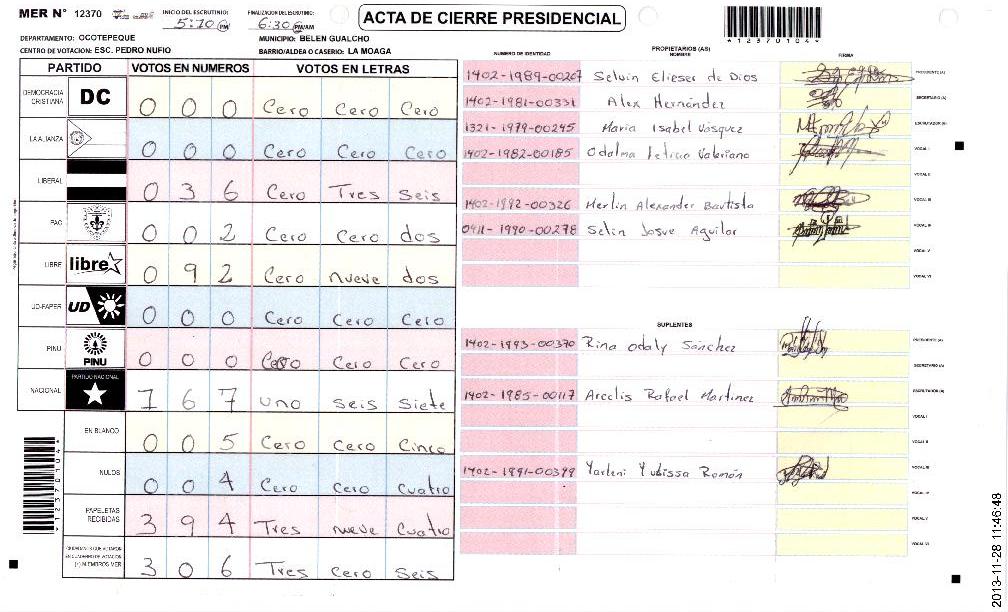 MER N° 12370
INICIO DE ESCRUTINIO: 5:10 PM
FINALIZACION DE ESCRUTINIO: 6:30 PM AM
ACTA DE CIERRE PRESIDENCIAL
*12370104*
DEPARTAMENTO: OCOTEPEQUE
MUNICIPIO: BELEN GUALCHO
CENTRO DE VOTACION: ESC. PEDRO NUFIO
BARRIO/ALDEA O CASERIO: LA MOAGA
PARTIDO VOTOS EN NUMEROS VOTOS EN LETRAS
DEMOCRACIA CRISTIANA DC 0 0 0 Cero Cero Cero
LA ALIANZA 0 0 0 Cero Cero Cero
LIBERAL 0 3 6 Cero Tres Seis
PAC 0 0 2 Cero Cero dos
LIBRE libre 0 9 2 Cero nueve dos
UD-FAPER UD 0 0 0 Cero Cero Cero
PINU PINU 0 0 0 Cero Cero Cero
NACIONAL PARTIDO NACIONAL 1 6 7 uno seis siete
EN BLANCO 0 0 5 Cero Cero Cinco
NULOS 0 0 4 Cero Cero cuatro
PAPELETAS RECIBIDAS 3 9 4 Tres nueve cuatro
CIUDADANOS QUE VOTARON EN CUADERNO DE VOTACION (+) MIEMBROS MER 3 0 6 Tres Cero Seis
*12370104*
PROPIETARIOS (AS)
NUMERO DE IDENTIDAD NOMBRE FIRMA
1402-1989-00267 Selvin Elieser de Dios PRESIDENTE (A)
1402-1981-00331 Alex Hernández SECRETARIO (A)
1321-1979-00245 Maria Isabel Vasquez ESCRUTADOR (A)
1402-1982-00185 Odalma Leticia Valeriano VOCAL I
VOCAL II
1402-1992-00326 Merlin Alexander Bautista VOCAL III
0411-1990-00278 Selin Josue Aguilar VOCAL IV
VOCAL V
VOCAL VI
SUPLENTES
1402-1993-00370 Rina Odaly Sánchez PRESIDENTE (A)
SECRETARIO (A)
1402-1985-00117 Arcelis Rafael Martinez ESCRUTADOR (A)
VOCAL I
VOCAL II
1402-1991-00379 Yarleni Yubissa Román VOCAL III
VOCAL IV
VOCAL V
VOCAL VI
2013-11-28 11:46:48